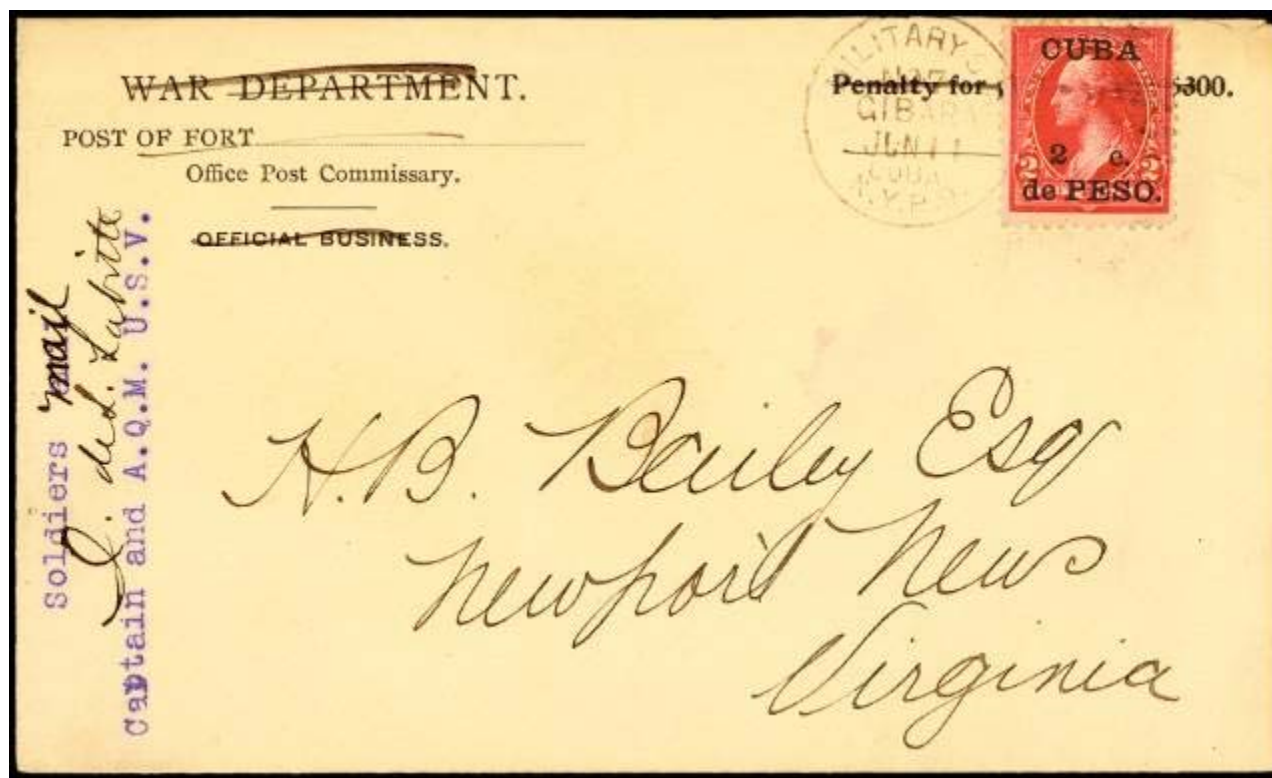 WAR DEPARTMENT.
POST OF FORT
Office Post Commissary.
OFFICIAL BUSINESS.
Penalty for $300.
MILITARY
GIBARA
JUN 11
CUBA
CUBA
2 c.
de PESO.
2 2
Soldiers mail
Captain and A.Q.M. U.S.V.
H.B. Bailey Esq
Newport News
Virginia